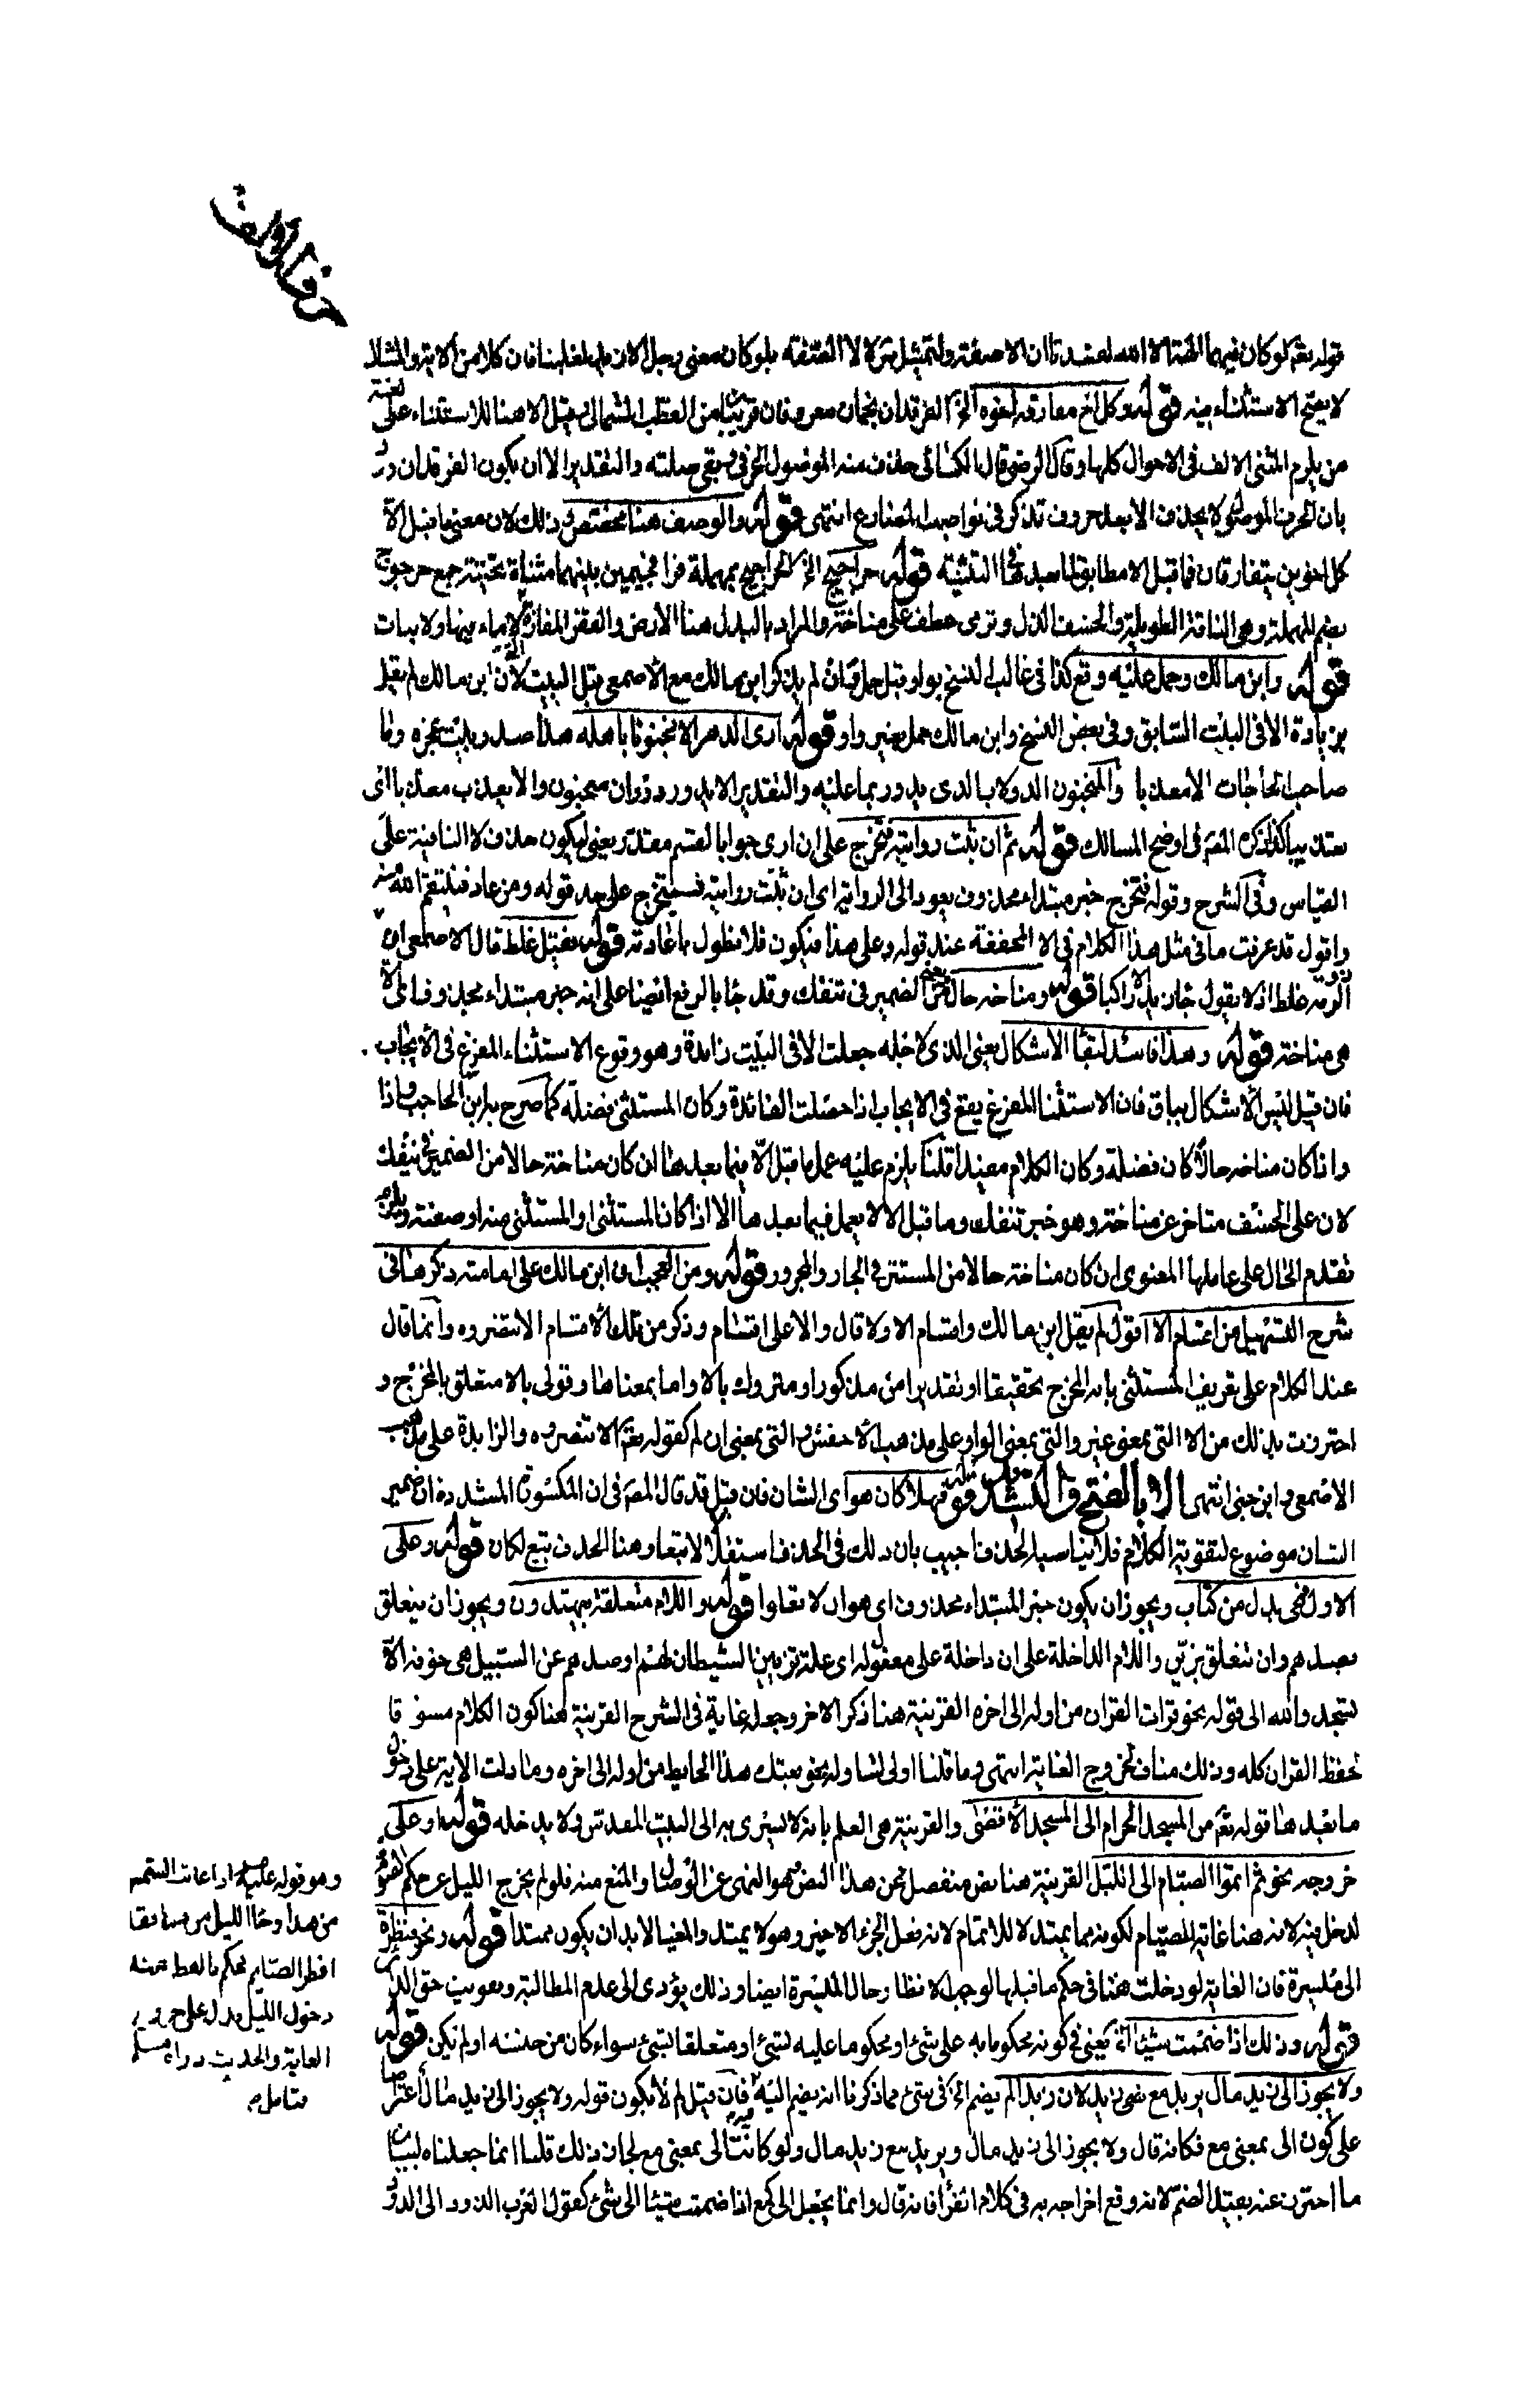 حرف الالف
قوله تعم لو كان فيهما الهة الا الله لفسدتا ان الا صفة ولتمثيل بلو كان معنى رجل الا زيد لغلبنا فان كلا من الاية والمثال
لا يصح الاستثناء فيه قوله وكل اخ مفارقه اخوه الخ الفرقدان نجمان معروفان قريبان من القطب الشمالى وقيل الا هنا للاستثناء على لغة
من يلزم المثنى الالف فى الاحوال كلها وقال الرضى قال الكسائى حذف منه الموصول الحرفى وبقى صلته والتقدير الا ان يكون الفرقدان ورد
بان الحرف الموصول لا يحذف الا بعد حروف تذكر فى نواصب المضارع انتهى قوله والوصف هنا مخصص وذلك لان معنى ما قبل الا
كل اخوين يتفارقان فما قبل الا مطابق لما بعدها فى التثنية قوله حراجيج الخ الحراجيج بمهملة فرا فجيمين بينهما مثناة تحتية جمع حرجوج
بضم المهملة وهى الناقة الطويلة والخسف الذل ونرمى عطف على مناخة والمراد بالبلد هنا الارض والقفر المفازة لا ماء فيها ولا نبات
قوله وابن مالك وحمل عليه وقع كذا فى غالب النسخ بواو قبل حمل فان لم يذكر ابن مالك مع الاصمعى قبل البيت لان ابن مالك لم يقل
بزيادة الا فى البيت السابق وفى بعض النسخ وابن مالك حمل بغير واو قوله ارى الدهر الا منجنونا باهله هذا صدر بيت عجزه وما
صاحب الحاجات الا معذبا والمنجنون الدولاب الذى يدور بما عليه والتقدير الا يدور دوران منجنون والا يعذب معذبا اى
تعذيبا كذا ذكره المصه فى اوضح المسالك قوله ثم ان ثبت روايته فتخرج على ان ارى جوابا لقسم مقدر يعنى ليكون حذف لا النافية على
القياس وفى الشرح وقوله فتخرج خبر مبتداء محذوف يعود الى الرواية اى ان ثبت روايته فستخرج على حد قوله ومن عاد فينتقم الله منه
واقول قد عرفت ما فى مثل هذا الكلام فى الا المخففة عند قوله وعلى هذا فيكون فلا نطول باعادته قوله فقيل غلط قال الاصمعى ان
ذو الرمة غلط اذ لا يقول جان زيد الا راكبا قوله ومناخه حال من الضمير فى تنفك وقد جا بالرفع ايضا على انه خبر مبتداء محذوف اى الا
هى مناخة قوله وهذا فاسد لبقا الاشكال يعنى الذى لاجله جعلت الا فى البيت زايدة وهو وقوع الاستثناء المفرغ فى الايجاب
فان قيل ليس الاشكال بباق فان الاستثنا المفرغ يقع فى الايجاب اذا حصلت الفائدة وكان المستثنى فضلة كما صرح به ابن الحاجب واذا
واذا كان مناخه حالا كان فضلة وكان الكلام مفيدا قلنا يلزم عليه عمل ما قبل الا فيما بعدها ان كان مناخة حالا من الضمير فى تنفك
لان على الخسف متاخر عن مناخة وهو خبر تنفك وما قبل الا لا يعمل فيما بعدها الا اذا كان المستثنى او المستثنى منه او صفته ويلزم
تقدم الحال على عاملها المعنوى ان كان مناخة حالا من المستتر فى الجار والمجرور قوله ومن العجب ان ابن مالك على امامته ذكرها فى
شرح التسهيل من اقسام الا اقول لم يقل ابن مالك واقسام الا ولا قال والا على اقسام وذكر من تلك الاقسام الا تنصروه وانما قال
عند الكلام على تعريف المستثنى بانه المخرج تحقيقا او تقديرا من مذكور او متروك بالا او ما بمعناها وقولى بالا متعلق بالمخرج و
احترزت بذلك من الا التى بمعنى غير والتى بمعنى الواو على مذهب الاخفش والتى بمعنى ان لم كقوله تعم الا تنصروه والزايدة على مذهب
الاصمعى وابن جنى انتهى الا بالفتح والتشديد قوله فهلا كان هو اى الشان فان قيل قد قال المصه فى ان المكسورة المشددة ان ضمير
الشان موضوع لتقوية الكلام فلا يناسبه الحذف اجيب بان ذلك فى الحذف استقلالا لا تبعا وهنا الحذف تبع لكان قوله وعلى
الاول فهى بدل من كتاب ويجوز ان يكون خبر المبتداء محذوف اى هو ان لا تعلوا قوله واللام متعلقة بيهتدون ويجوز ان يتعلق
بصدهم وان تتعلق بزين واللام الداخلة على ان داخلة على مفعوله اى علة تزيين الشيطان لهم او صدهم عن السبيل هى خوفه الا
يسجدوا لله الى قوله نحو قرات القران من اوله الى اخره القرينة هنا ذكر الاخر وجعله غاية فى الشرح القرينة هنا كون الكلام مسوقا
لحفظ القران كله وذلك مناف لخروج الغاية انتهى وما قلنا اولى لشاوله نحو بعتك هذا الحايط من اوله الى اخره وما دلت الاية على دخول
ما بعدها قوله تعم من المسجد الحرام الى المسجد الاقصى والقرينة هى العلم بانه لا يسرى به الى البيت المقدس ولا يدخله قوله او على
خروجه نحو ثم اتموا الصيام الى الليل القرينة هنا نص منفصل عن هذا النص هو النهى عن الوصال والمنع منه فلو لم يخرج الليل عن حكم الصوم
لدخل فيه لانه هنا غاية للصيام لكونه مما يمتد لا للاتمام لانه فعل الجزء الاخير وهو لا يمتد والمغيا لابد ان يكون ممتدا قوله ونحو فنظرة
الى ميسرة فان الغاية لو دخلت هنا فى حكم ما قبلها لوجب الانظار حال الميسرة ايضا وذلك يؤدى الى عدم المطالبة وتفويت حق الدين
قوله وذلك اذا ضممت شيئا الخ يعنى فى كونه محكوما به على شئ او محكوما عليه لشئ او متعلقا لشئ سواء كان من جنسه او لم يكن قوله
ولا يجوز الى زيد مال يريد مع زيد لان زيدا لم يضم الخ فى شئ مما ذكرنا انه يضم اليه فان قيل لم لا يكون قوله ولا يجوز الى زيد مال اعتراضا
على كون الى بمعنى مع فكانه قال ولا يجوز الى زيد مال ويريد مع زيد مال ولو كانت الى بمعنى مع لجاز ذلك قلنا انما جعلناه لبيان
ما احترز عنه بقيد الضم لانه وقع اخراجه به فى كلام الفرا فانه قال وانما يجعل الى كمع اذا ضممت شيئا الى شئ كقول العرب الذود الى الذود
وهو قوله عليه صلم اذا غابت الشمس
من هدا وجا الليل من ههنا فقد
افطر الصايم فحكم بالفطر عند
دخول الليل يدل على خروج
الغاية والحديث رواه مسلم
فتامل م